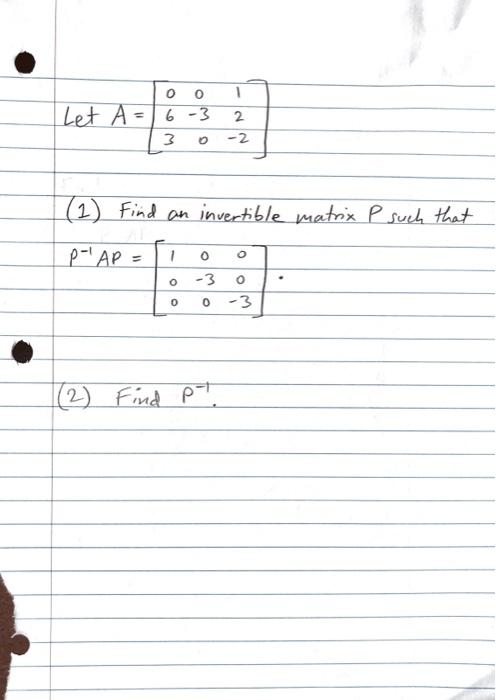 Let A = [0 0 1
6 -3 2
3 0 -2]
(1) Find an invertible matrix P such that
P⁻¹AP = [1 0 0
0 -3 0
0 0 -3].
(2) Find P⁻¹.